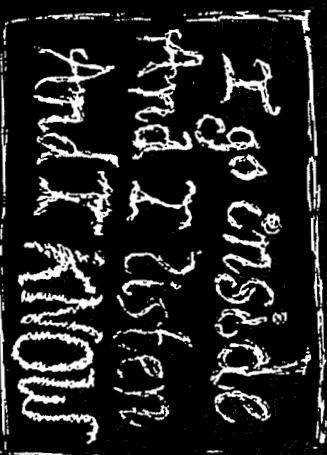 I go inside
And I listen,
And I KNOW